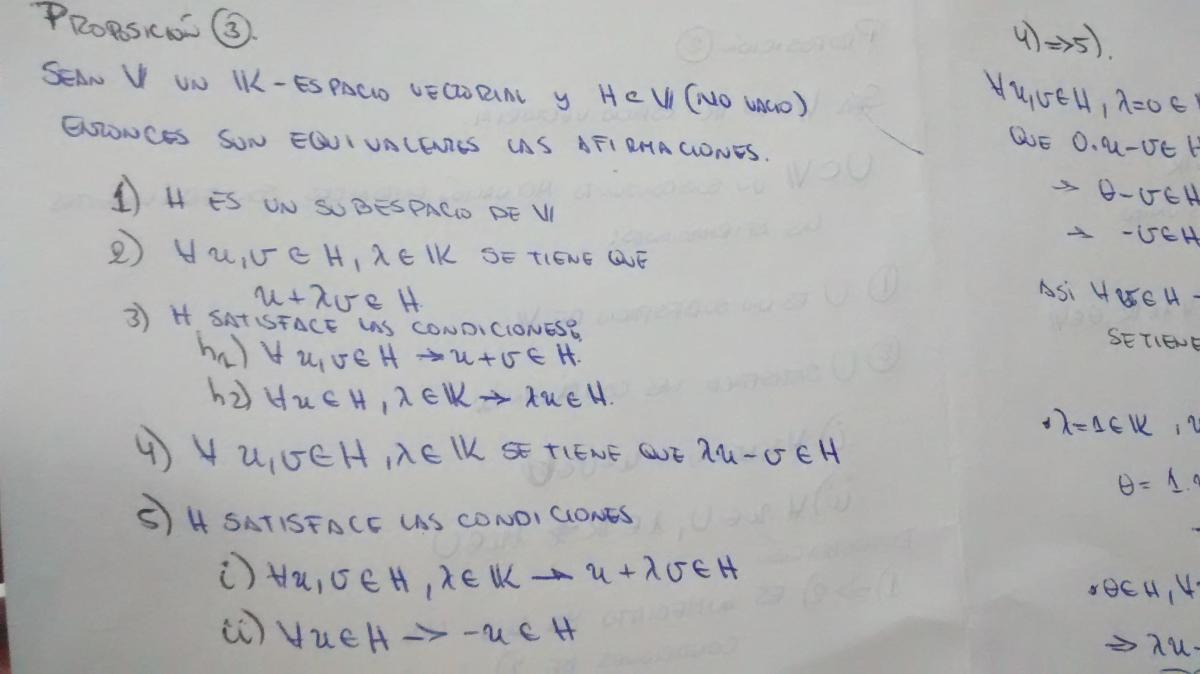 PROPOSICIÓN ③.
SEAN V UN IK-ESPACIO VECTORIAL Y H⊂V (NO VACIO)
ENTONCES SON EQUIVALENTES LAS AFIRMACIONES.
1) H ES UN SUBESPACIO DE V
2) ∀ u,v ∈ H, λ∈IK SE TIENE QUE
u+λv∈H.
3) H SATISFACE LAS CONDICIONES:
h1) ∀ u,v∈H → u+v∈H.
h2) ∀u∈H, λ∈IK → λu∈H.
4) ∀ u,v∈H, λ∈IK SE TIENE QUE λu-v∈H
5) H SATISFACE LAS CONDICIONES
i) ∀u,v∈H, λ∈IK → u+λv∈H
ii) ∀u∈H → -u∈H
4)⇒5).
∀u,v∈H, λ=0∈
QUE 0.u-v∈H
→ θ-v∈H
→ -v∈H
ASI ∀v∈H
SE TIENE
•λ=1∈IK,
θ=1.
•θ∈H, ∀
⇒ λu-